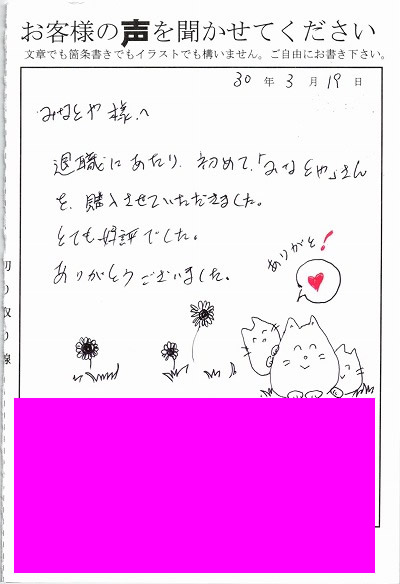 お客様の声を聞かせてください
文章でも箇条書きでもイラストでも構いません。ご自由にお書き下さい。
30年3月19日
みなとや様へ
退職にあたり、初めて「みなとや」さん
を、購入させていただきました。
とても好評でした。
ありがとうございました。
ありがと!
切り取り線